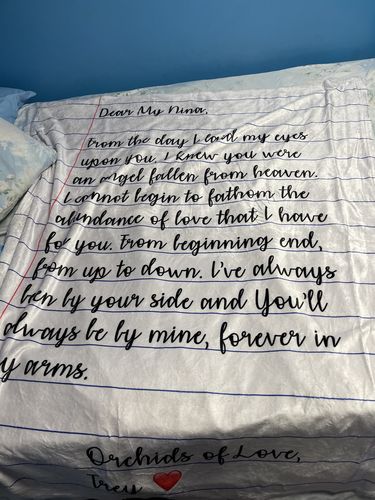 Dear My Nina,
From the day I laid my eyes
upon you, I knew you were
an angel fallen from heaven.
I cannot begin to fathom the
abundance of love that I have
for you. From beginning end,
from up to down. I've always
ben by your side and You'll
always be by mine, forever in
y arms.
Orchids of Love,
Trey ❤️